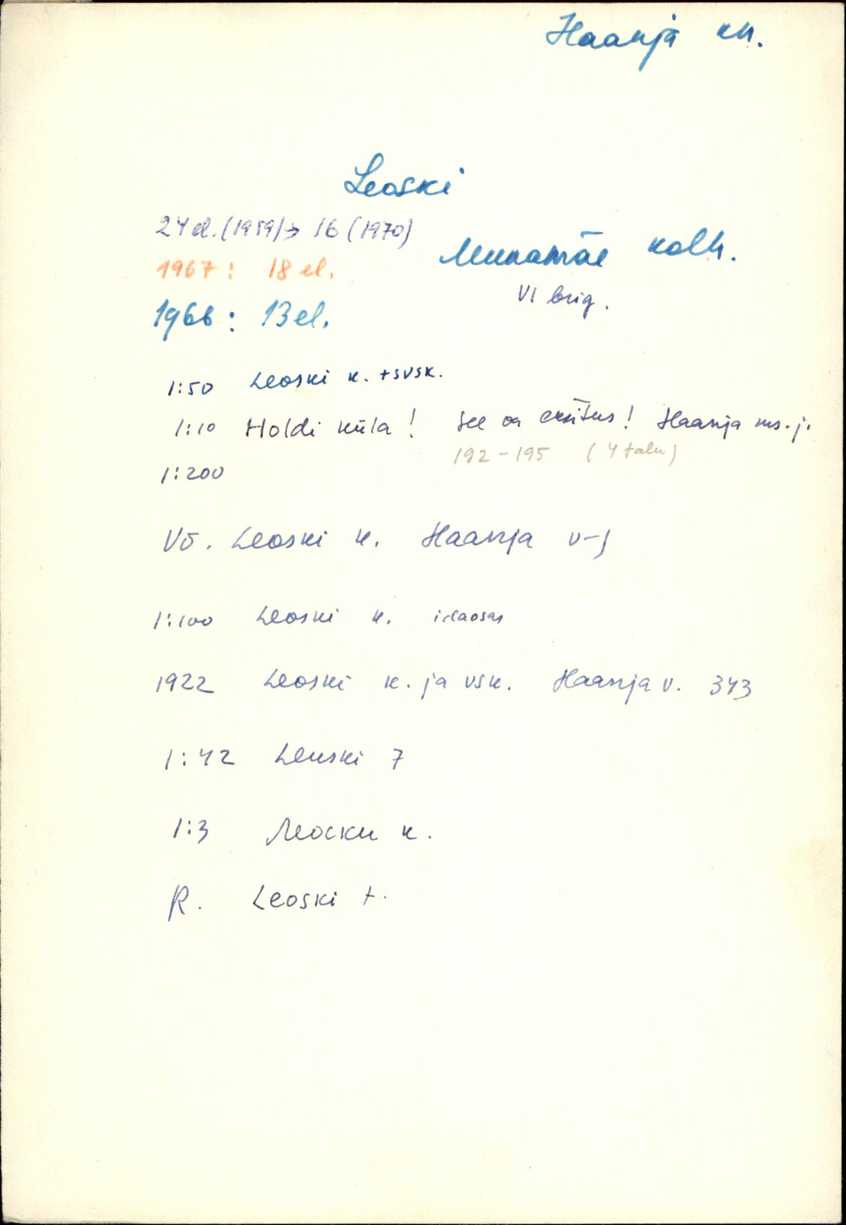 Haanja kn.
Leoski
24 el. (1959) → 16 (1970)
Munamäe kolh.
1967: 18 el.
VI brig.
1966: 13 el.
1:50 Leoski k. +svsk.
1:10 Holdi küla! See on eksitus! Haanja ms. j.
192-195 (4 talu)
1:200
Võ. Leoski k. Haanja v-j
1:100 Leoski k. idaosas
1922 Leoski k. ja vsk. Haanja v. 343
1:42 Leuski 7
1:3 Леоски к.
R. Leoski t.